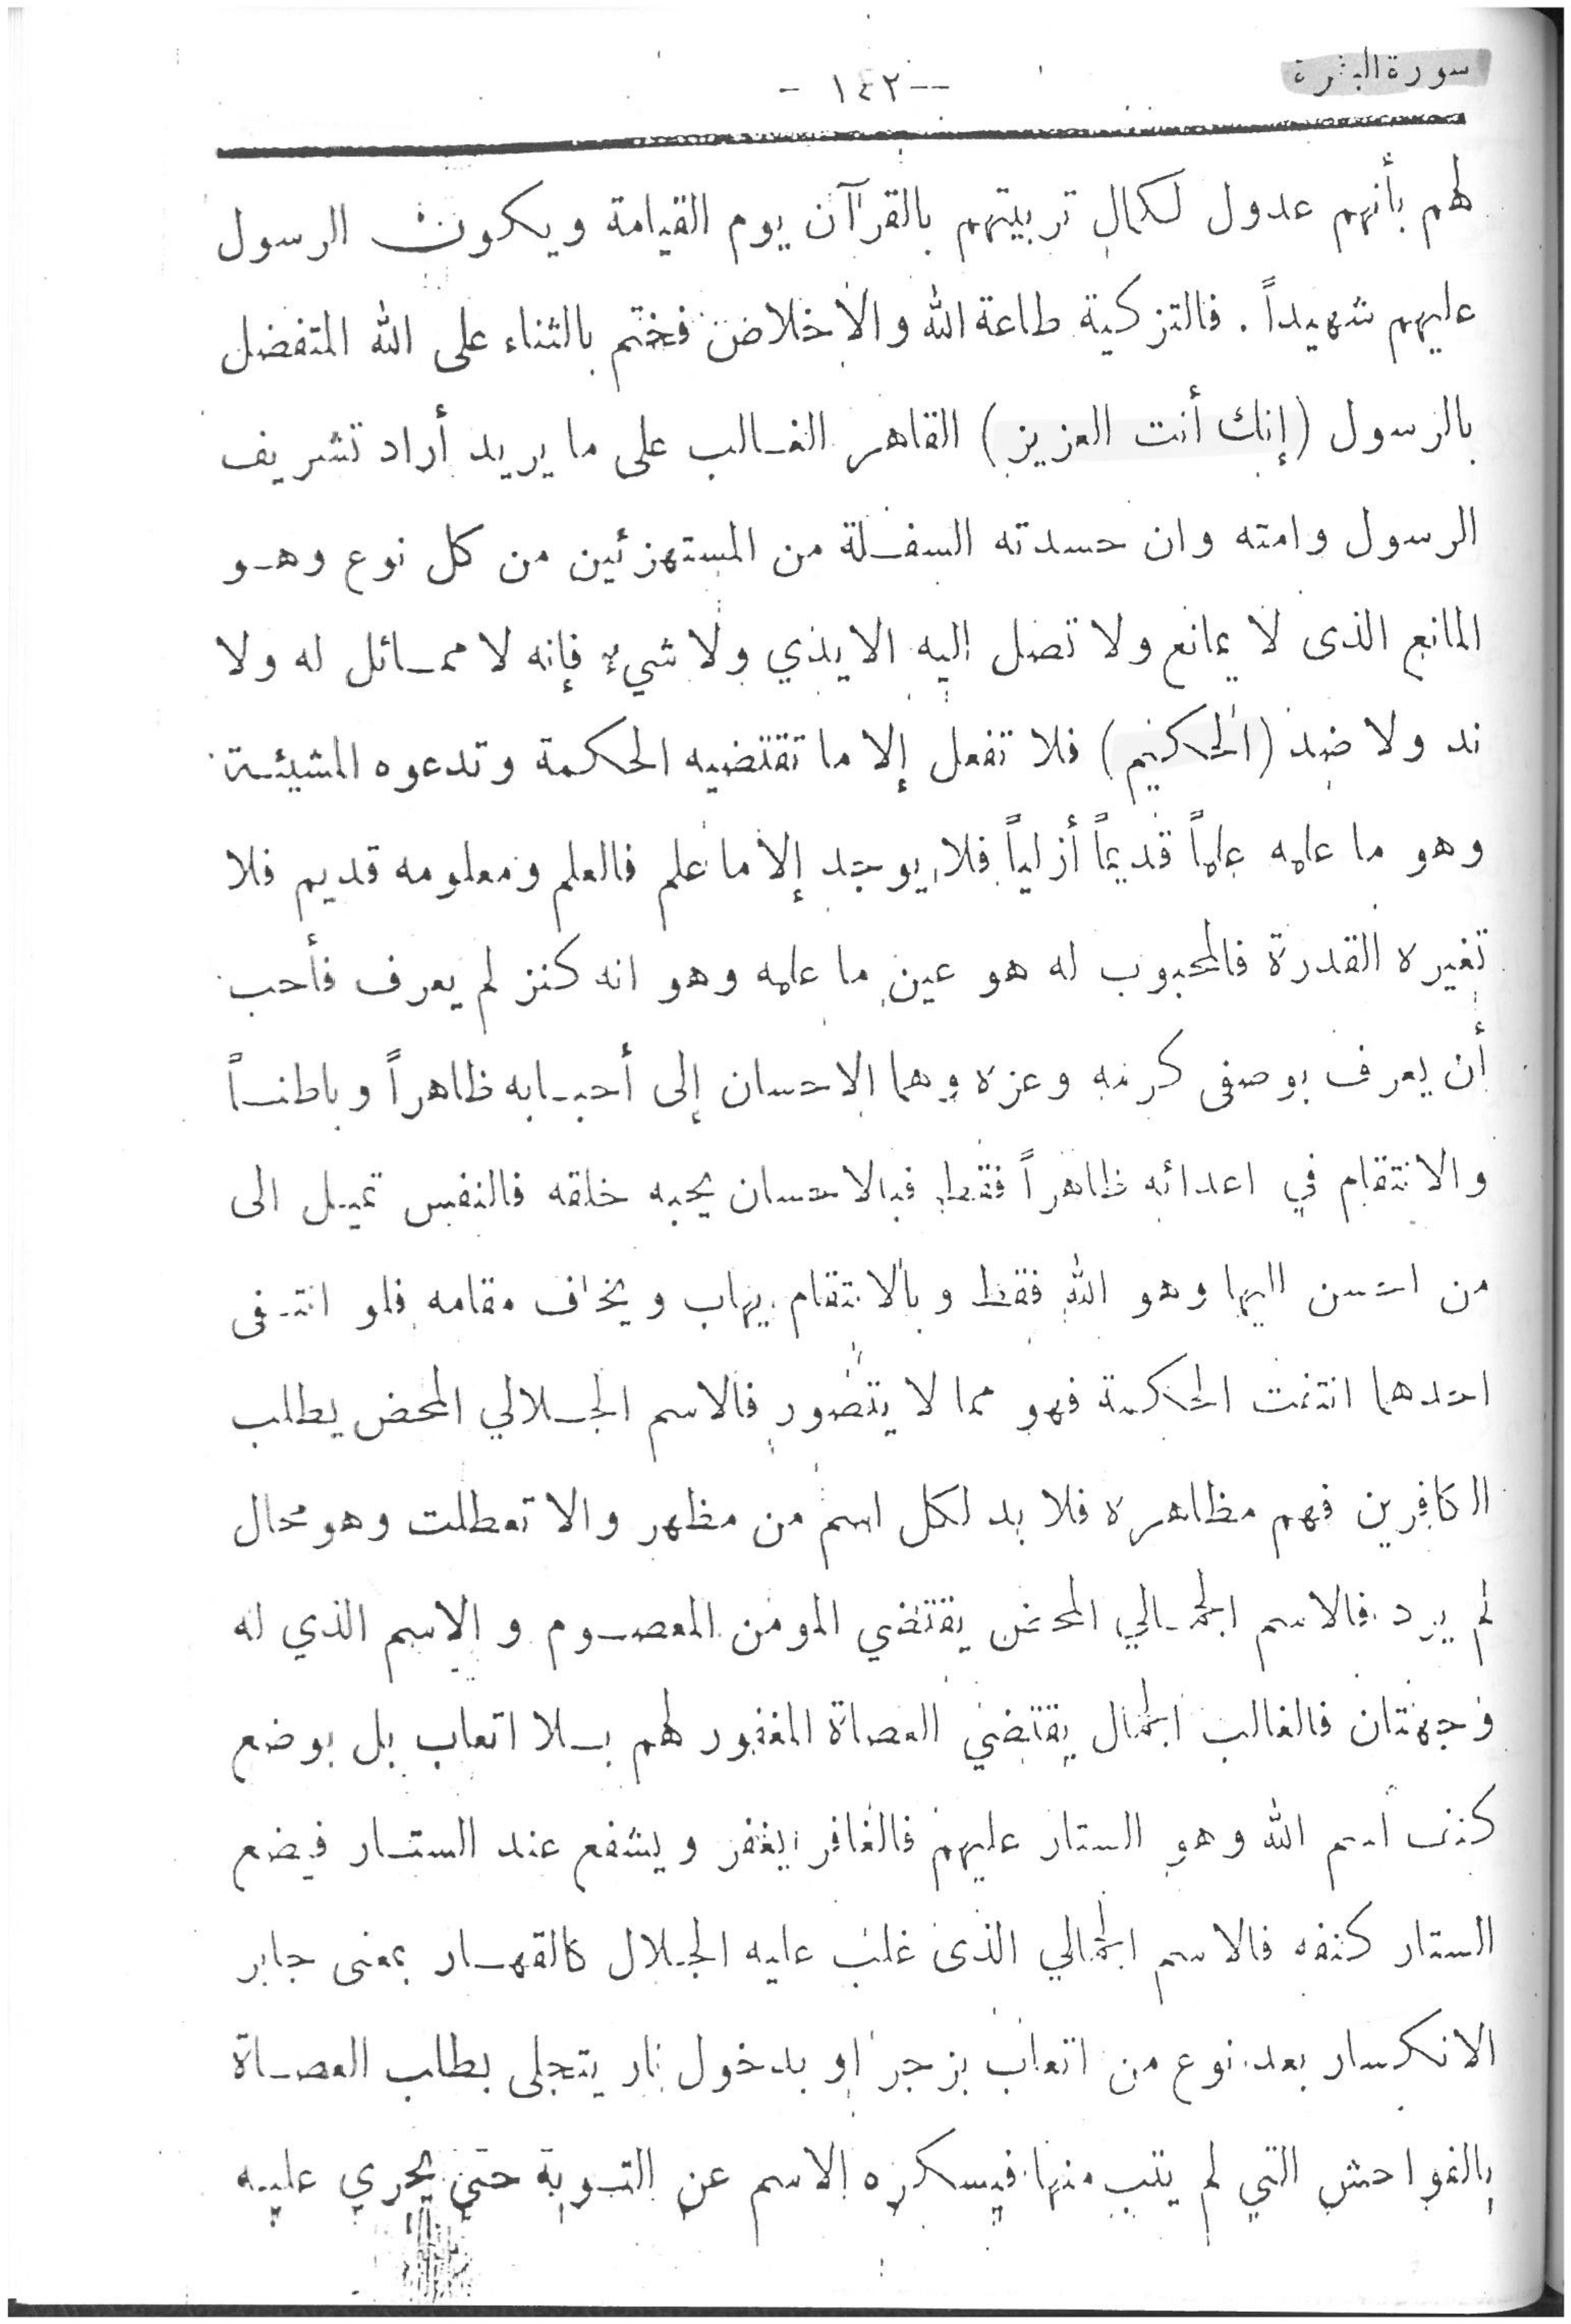 سورة البقرة
-- ١٤٢ -
لهم بأنهم عدول لكمال تربيتهم بالقرآن يوم القيامة ويكون الرسول
عليهم شهيداً . فالتزكية طاعة الله والاخلاص فختم بالثناء على الله المتفضل
بالرسول (إنك أنت العزيز) القاهر الغالب على ما يريد أراد تشريف
الرسول وامته وان حسدته السفلة من المستهزئين من كل نوع وهو
المانع الذى لا يمانع ولا تصل اليه الايذي ولا شيء فإنه لا ممائل له ولا
ند ولا ضد (الحكيم) فلا تفعل إلا ما تقتضيه الحكمة وتدعوه المشيئة
وهو ما علمه علماً قديماً أزلياً فلا يوجد إلا ما علم فالعلم ومعلومه قديم فلا
تغيره القدرة فالمحبوب له هو عين ما علمه وهو انه كنز لم يعرف فأحب
أن يعرف بوصفى كرمه وعزه وهما الاحسان إلى أحبابه ظاهراً وباطناً
والانتقام في اعدائه ظاهراً فقط فبالاحسان يحبه خلقه فالنفس تميل الى
من احسن اليها وهو الله فقط وبالانتقام يهاب ويخاف مقامه فلو انتفى
احدهما انتفت الحكمة فهو مما لا يتصور فالاسم الجلالي المحض يطلب
الكافرين فهم مظاهره فلا بد لكل اسم من مظهر والا تعطلت وهو محال
لم يرد فالاسم الجمالي المحض يقتضي المومن المعصوم والاسم الذي له
وجهتان فالغالب الجمال يقتضي العصاة المغفور لهم بلا اتعاب بل بوضع
كنف اسم الله وهو الستار عليهم فالغافر يغفر ويشفع عند الستار فيضع
الستار كنفه فالاسم الجمالي الذى غلب عليه الجلال كالقهار بمعنى جابر
الانكسار بعد نوع من اتعاب بزجر او بدخول نار يتجلى بطلب العصاة
بالفواحش التي لم يتب منها فيسكره الاسم عن التوبة حتى يجري عليه